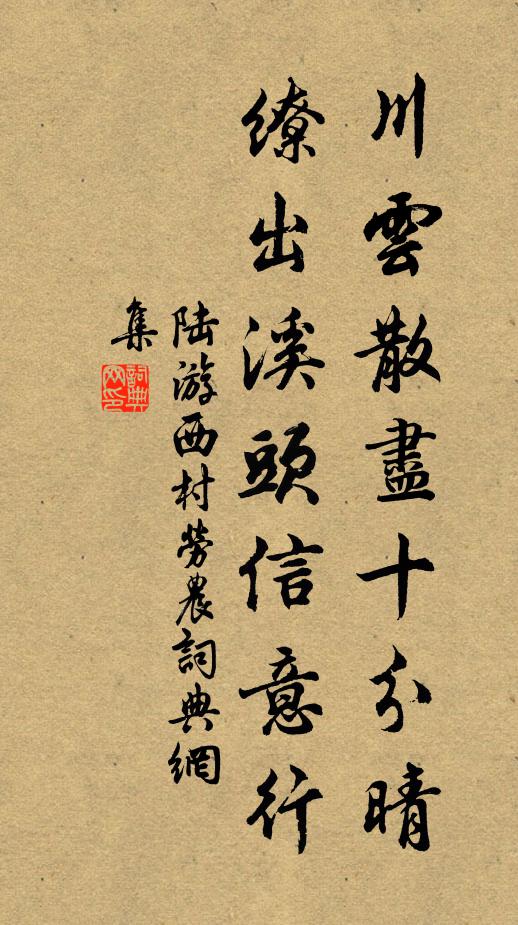 川雲散盡十分晴
繚出溪頭信意行
陸游西村勞農詞典網
集
詞典
网印